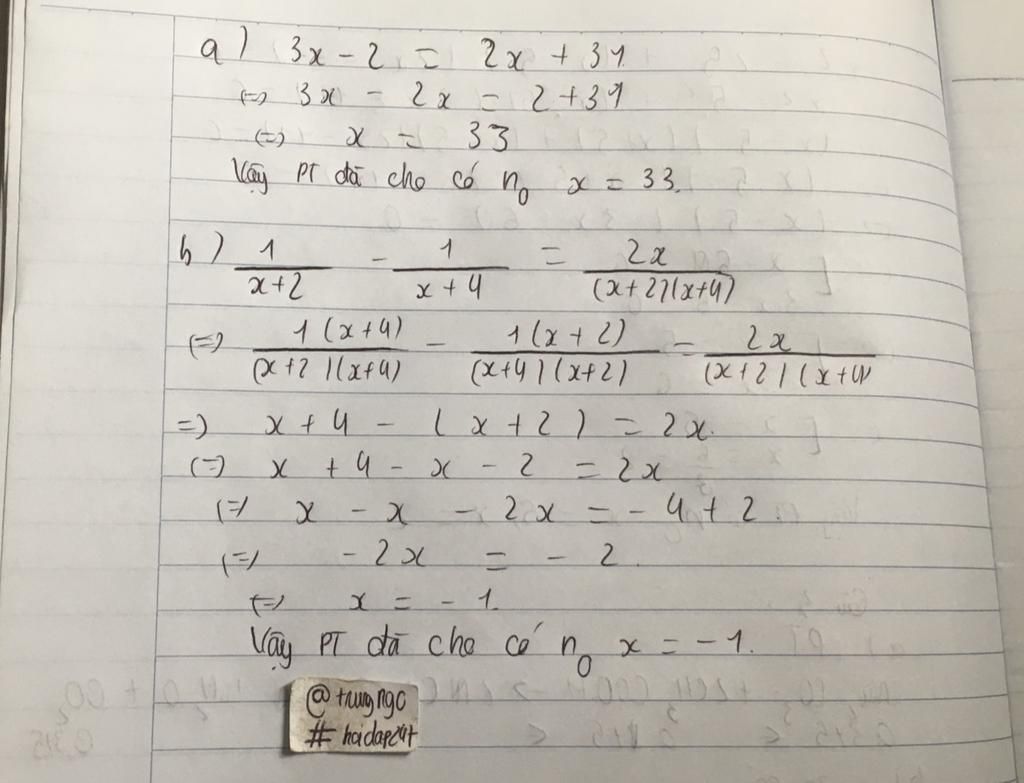 a) 3x - 2 = 2x + 31
(=) 3x - 2x = 2 + 31
(=) x = 33
Vậy PT đã cho có n₀ x = 33.
b) 1/(x+2) - 1/(x+4) = 2x/((x+2)(x+4))
(=) 1(x+4)/((x+2)(x+4)) - 1(x+2)/((x+4)(x+2)) = 2x/((x+2)(x+4))
=) x + 4 - (x + 2) = 2x.
(=) x + 4 - x - 2 = 2x
(=) x - x - 2x = - 4 + 2.
(=) - 2x = - 2.
(=) x = - 1.
Vậy PT đã cho có n₀ x = - 1.
@trungngc
#hoidap247